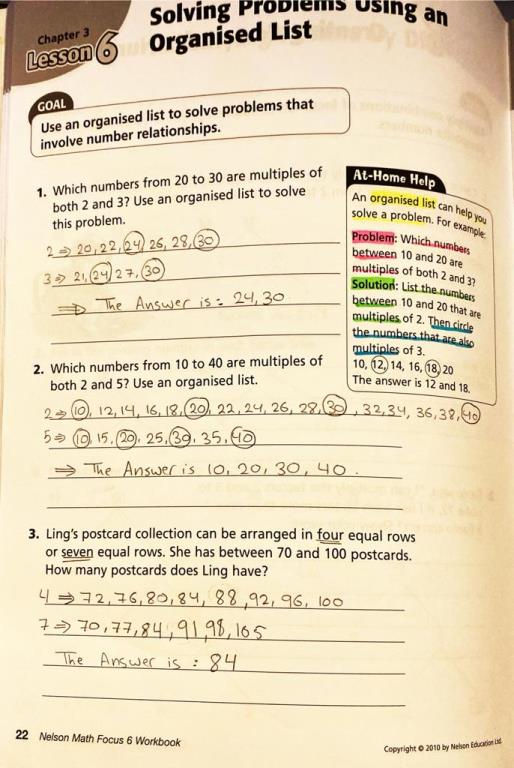 Chapter 3
Lesson 6
Solving Problems Using an
Organised List
GOAL
Use an organised list to solve problems that
involve number relationships.
1. Which numbers from 20 to 30 are multiples of
both 2 and 3? Use an organised list to solve
this problem.
2 ⇒ 20, 22, 24, 26, 28, 30
3 ⇒ 21, 24, 27, 30
⇒ The Answer is : 24, 30
At-Home Help
An organised list can help you
solve a problem. For example:
Problem: Which numbers
between 10 and 20 are
multiples of both 2 and 3?
Solution: List the numbers
between 10 and 20 that are
multiples of 2. Then circle
the numbers that are also
multiples of 3.
10, 12, 14, 16, 18, 20
The answer is 12 and 18.
2. Which numbers from 10 to 40 are multiples of
both 2 and 5? Use an organised list.
2 ⇒ 10, 12, 14, 16, 18, 20, 22, 24, 26, 28, 30, 32, 34, 36, 38, 40
5 ⇒ 10, 15, 20, 25, 30, 35, 40
⇒ The Answer is 10, 20, 30, 40.
3. Ling's postcard collection can be arranged in four equal rows
or seven equal rows. She has between 70 and 100 postcards.
How many postcards does Ling have?
4 ⇒ 72, 76, 80, 84, 88, 92, 96, 100
7 ⇒ 70, 77, 84, 91, 98, 105
The Answer is : 84
22 Nelson Math Focus 6 Workbook
Copyright © 2010 by Nelson Education Ltd.